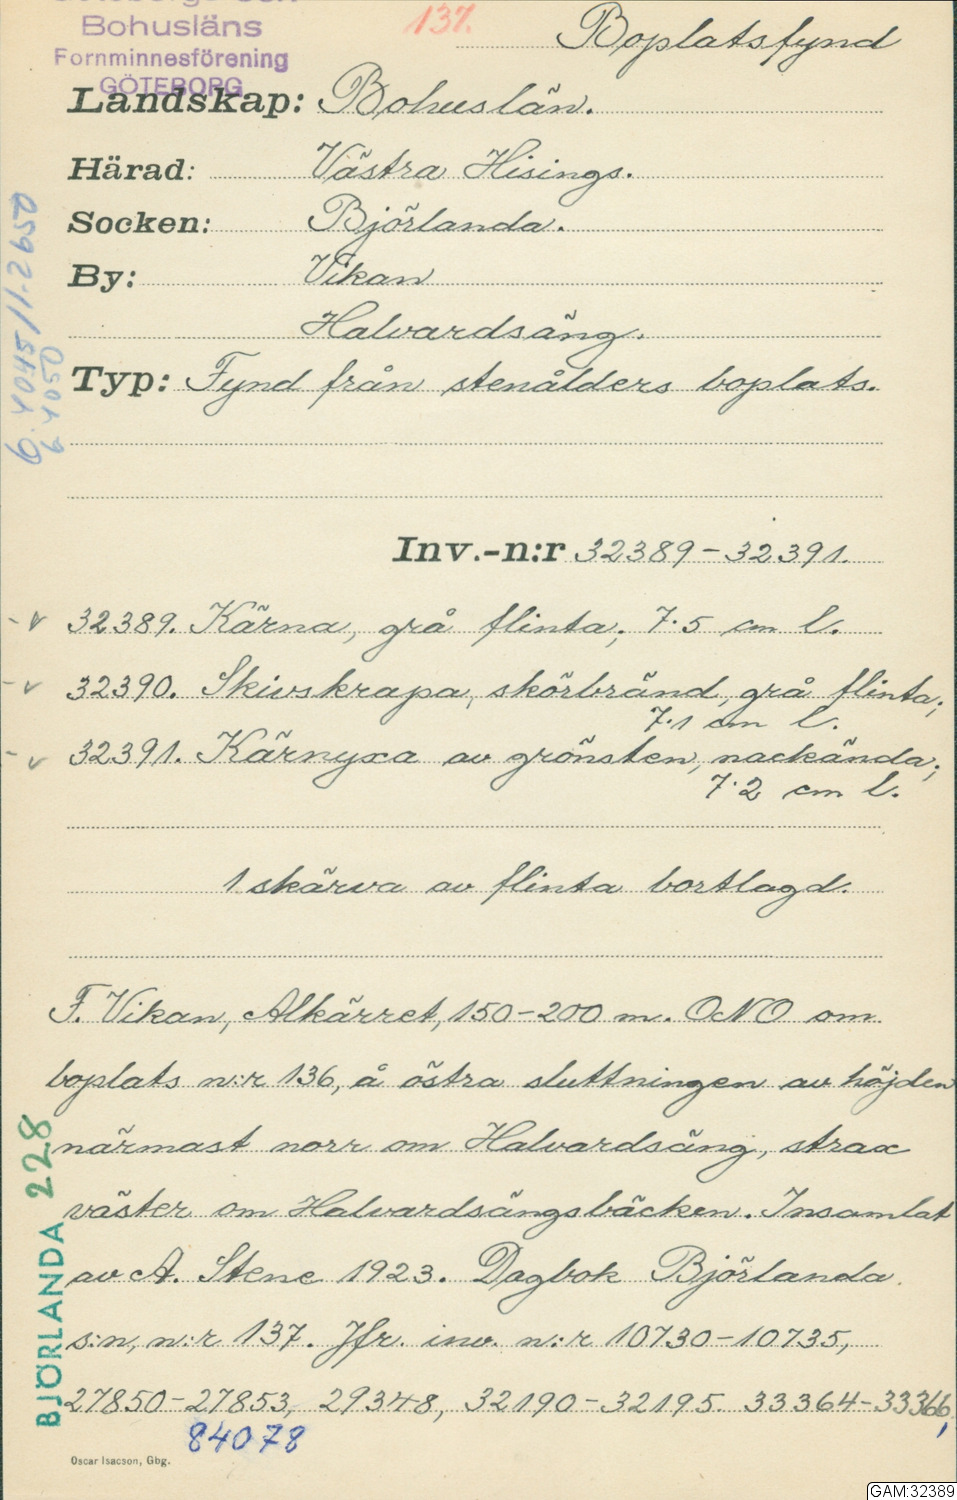 Bohusläns
Fornminnesförening
GÖTEBORG
137.
Boplatsfynd
Landskap: Bohuslän.
Härad: Västra Hisings.
Socken: Björlanda.
By: Vikan
Halvardsäng.
Typ: Fynd från stenålders boplats.
Inv.-n:r 32389-32391.
32389. Kärna, grå flinta; 7.5 cm l.
32390. Skivskrapa, skörbränd, grå flinta;
7.1 cm l.
32391. Kärnyxa av grönsten, nackända;
7.2 cm l.
1 skärva av flinta bortlagd.
F. Vikan, Alkärret, 150-200 m. ONO om
boplats n:r 136, å östra sluttningen av höjden
närmast norr om Halvardsäng, strax
väster om Halvardsängsbäcken. Insamlat
av A. Stene 1923. Dagbok Björlanda
s:n, n:r 137. Jfr. inv. n:r 10730-10735,
27850-27853, 29348, 32190-32195. 33364-33366,
84078
Oscar Isacson, Gbg.
BJÖRLANDA 228
6.4045/11-2650
6 4050
GAM:32389